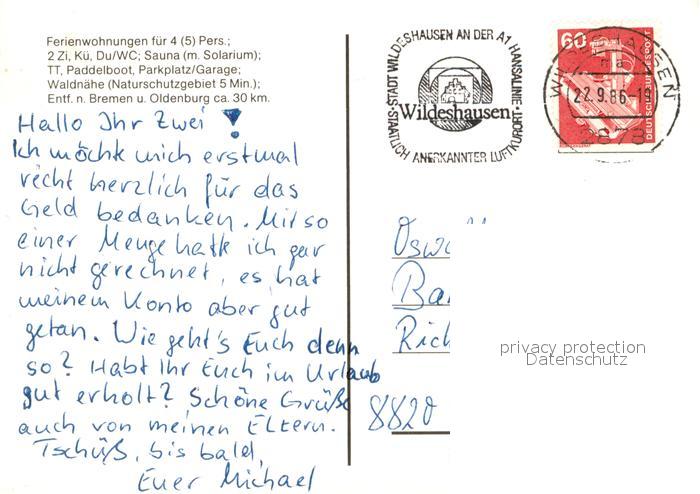 Ferienwohnungen für 4 (5) Pers.;
2 Zi, Kü, Du/WC; Sauna (m. Solarium);
TT, Paddelboot, Parkplatz/Garage;
Waldnähe (Naturschutzgebiet 5 Min.);
Entf. n. Bremen u. Oldenburg ca. 30 km.
Hallo Ihr Zwei!
Ich möchte mich erstmal
recht herzlich für das
Geld bedanken. Mit so
einer Menge hatte ich gar
nicht gerechnet, es hat
meinem Konto aber gut
getan. Wie geht's Euch denn
so? Habt Ihr Euch im Urlaub
gut erholt? Schöne Grüße
auch von meinen Eltern.
Tschüß, bis bald,
Euer Michael
STADT WILDESHAUSEN AN DER A1 HANSALINIE
Wildeshausen
STAATLICH ANERKANNTER LUFTKURORT
60
DEUTSCHE BUNDESPOST
WILDESHAUSEN
22.9.86-18
2878
Osw
Ba
Rich
8820
privacy protection
Datenschutz